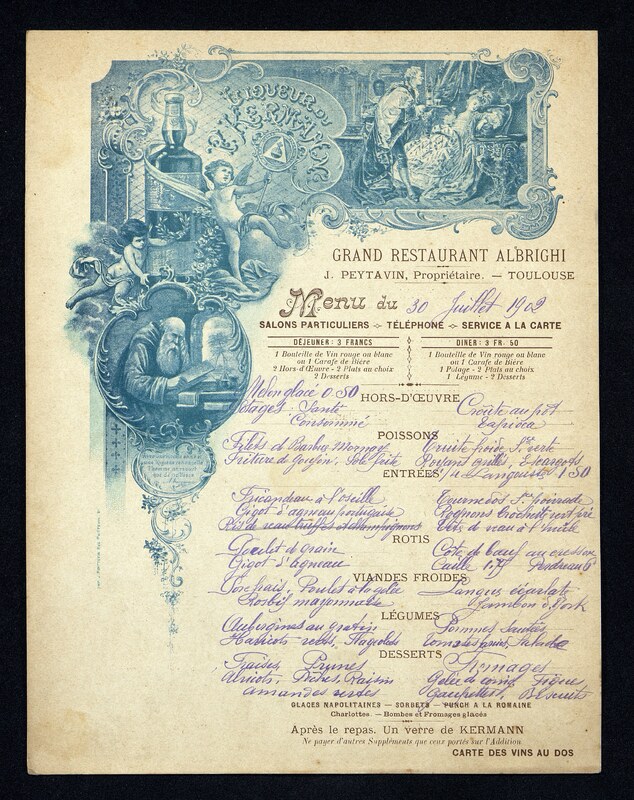 LIQUEUR DU
KERMANN
GRAND RESTAURANT ALBRIGHI
J. PEYTAVIN, Propriétaire. — TOULOUSE
Menu du 30 Juillet 1902
SALONS PARTICULIERS ÷ TÉLÉPHONE ÷ SERVICE A LA CARTE
DÉJEUNER: 3 FRANCS
1 Bouteille de Vin rouge ou blanc
ou 1 Carafe de Bière
2 Hors-d'Œuvre - 2 Plats au choix
2 Desserts
DINER: 3 FR. 50
1 Bouteille de Vin rouge ou blanc
ou 1 Carafe de Bière
1 Potage - 2 Plats au choix
1 Légume - 2 Desserts
Melon glacé 0.50
HORS-D'ŒUVRE
Potages. Santé Croûte au pot
Consommé Tapioca
POISSONS
Filets de Barbue Mornay Truite froide Sce verte
Friture de Goujon, Sole frite grillés, Escargots
ENTRÉES
Langouste 1 50
Fricandeau à l'oseille Tournedos Sce poivrade
Gigot d'agneau portugaise Rognons Crochette vert pré
Tête de veau à l'huile
ROTIS
Poulet de grain Côte de bœuf au cresson
Gigot d'agneau Caille 1.75 Perdreau 6
VIANDES FROIDES
Porc frais, Poulet à la gelée Langue écarlate
Rosbif mayonnaise Jambon d'York
LÉGUMES
Aubergines au gratin Pommes Sautées
Haricots verts, Flageolets Tomates farcies, Salade
DESSERTS
Fraises, Prunes Fromages
Abricots, Pêches, Raisins Gelée de coing, Figues
amandes vertes Gaufrettes, Biscuits
GLACES NAPOLITAINES — SORBETS — PUNCH A LA ROMAINE
Charlottes. — Bombes et Fromages glacés
Après le repas. Un verre de KERMANN
Ne payer d'autres Suppléments que ceux portés sur l'Addition
CARTE DES VINS AU DOS